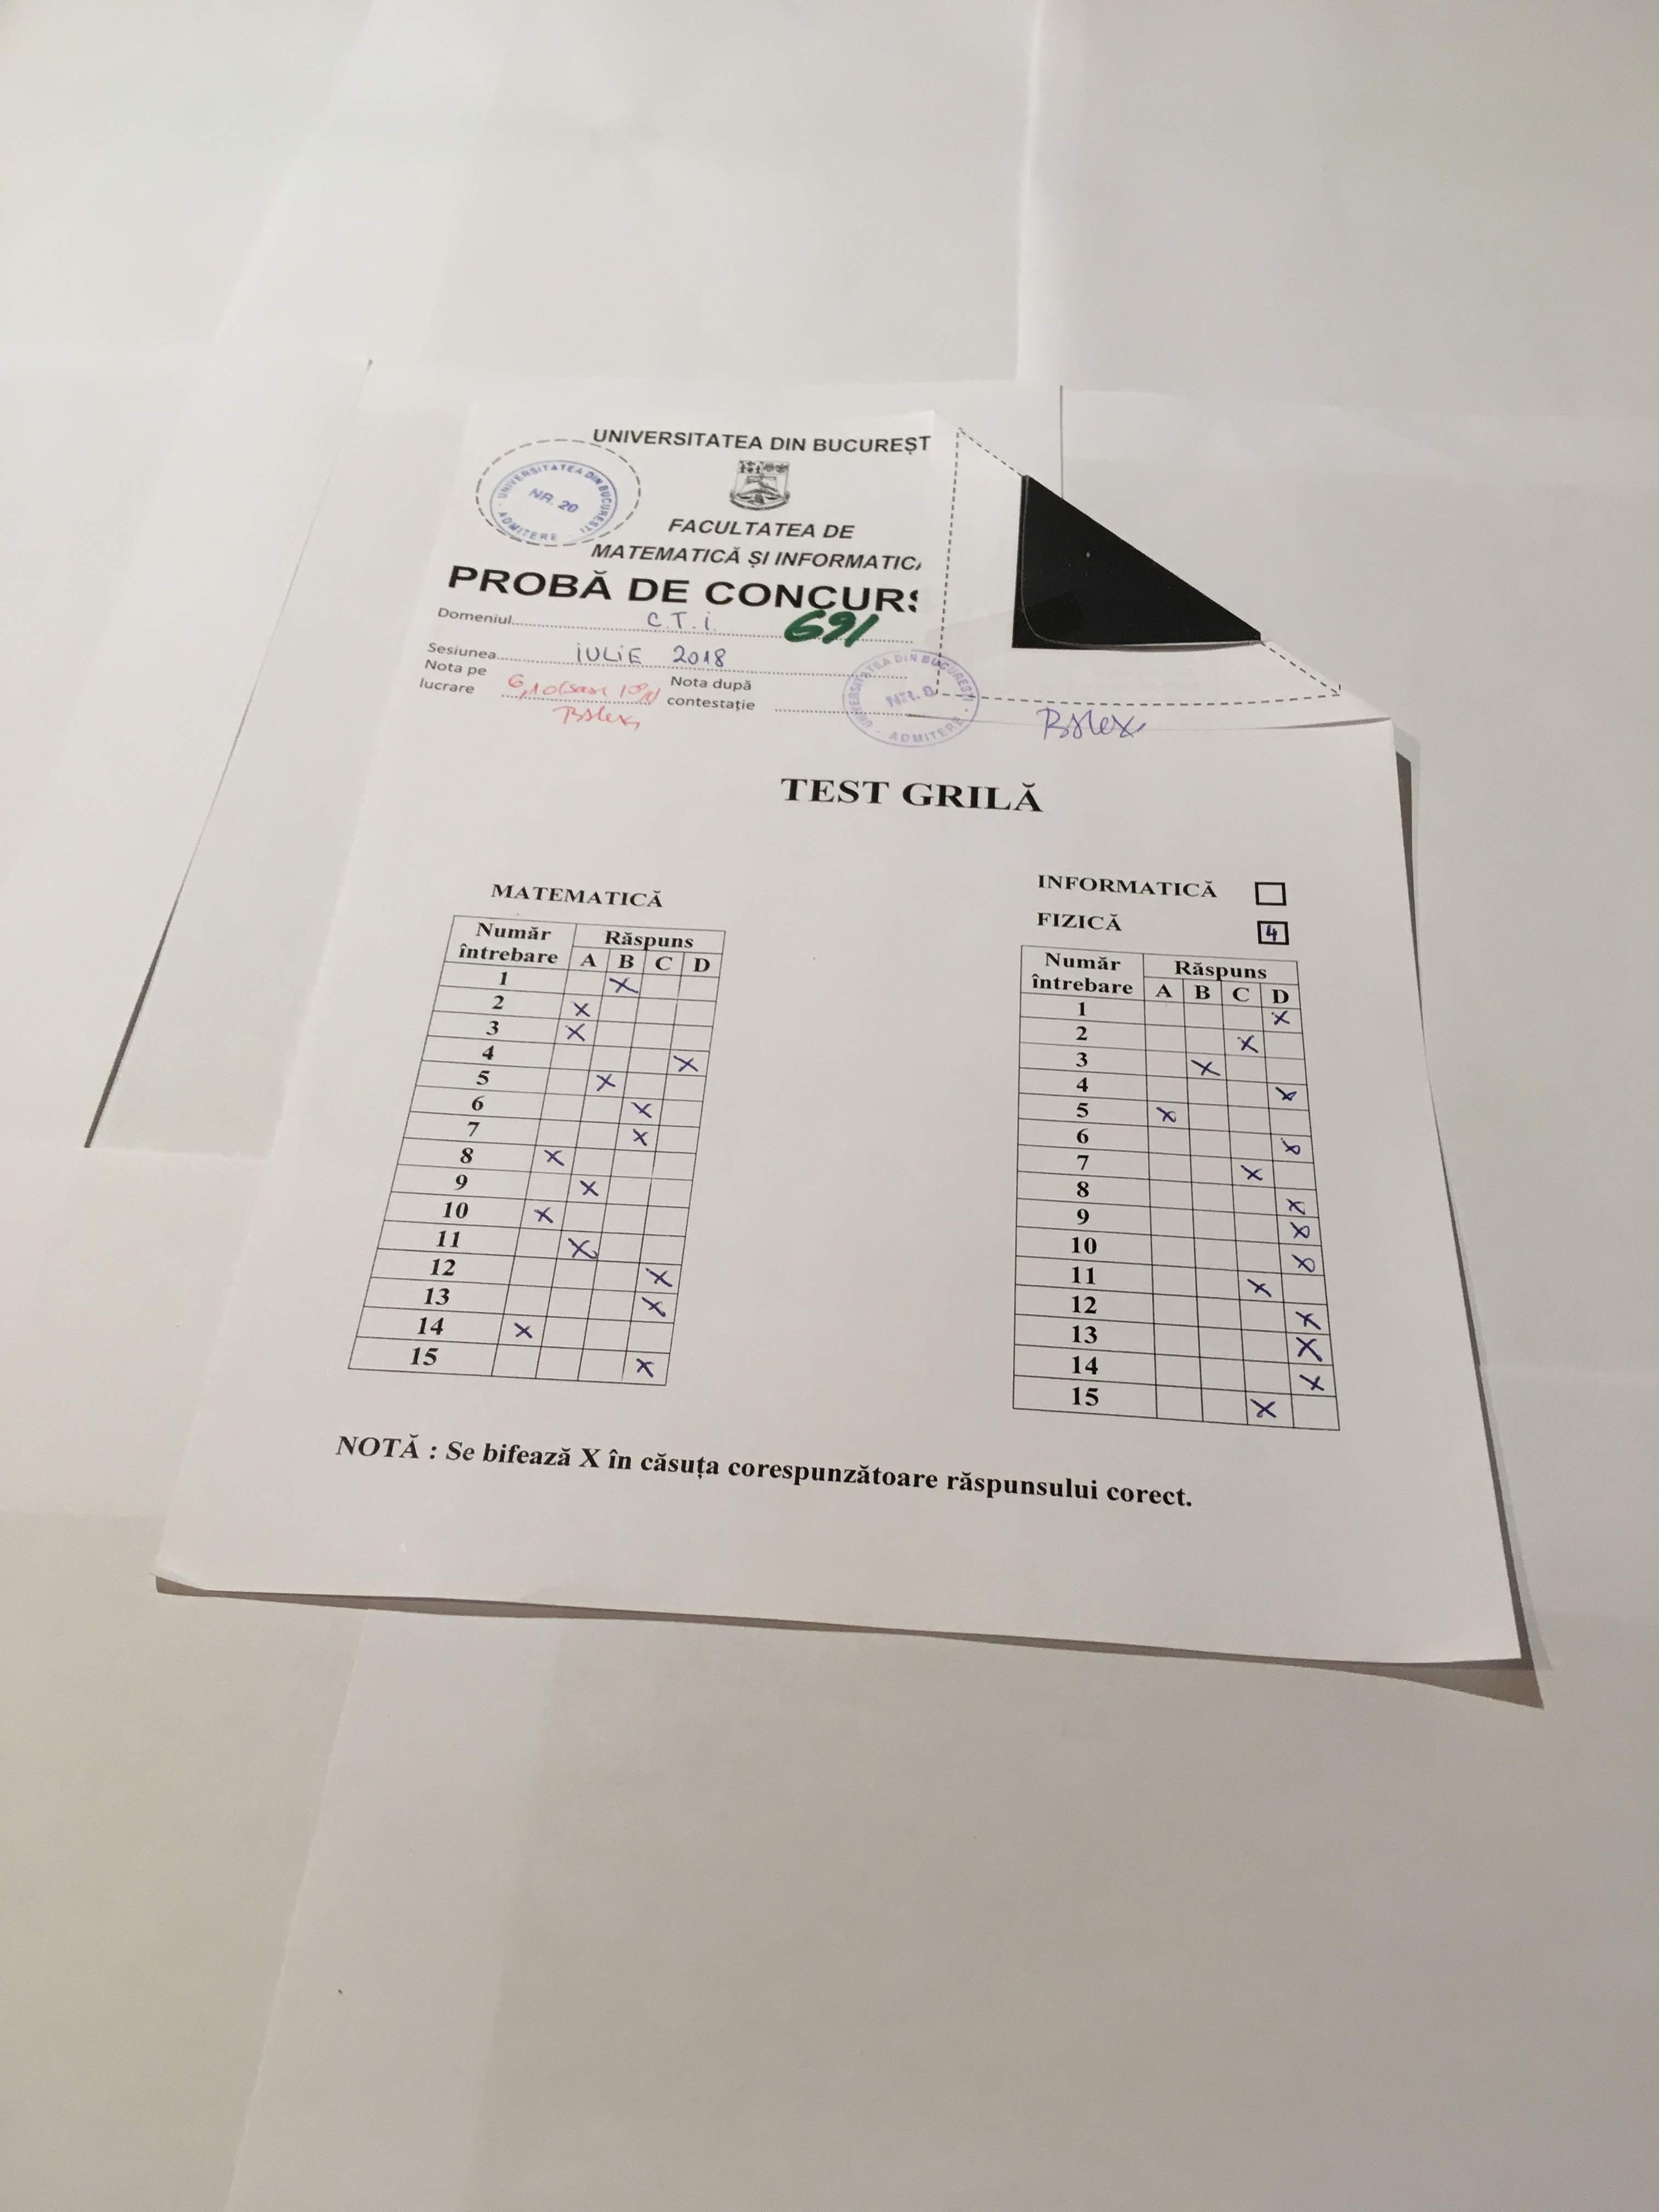 UNIVERSITATEA DIN BUCUREȘT
UNIVERSITATEA DIN BUCUREȘTI
NR. 20
ADMITERE
FACULTATEA DE
MATEMATICĂ ȘI INFORMATIC
PROBĂ DE CONCURS
Domeniul C.T.i.
691
Sesiunea iULiE 2018
Nota pe lucrare 6,10 (șase 10%)
Nota după contestație
ADMITERE
TEST GRILĂ
MATEMATICĂ
Număr întrebare Răspuns
A B C D
1 X
2 X
3 X
4 X
5 X
6 X
7 X
8 X
9 X
10 X
11 X
12 X
13 X
14 X
15 X
INFORMATICĂ
FIZICĂ 4
Număr întrebare Răspuns
A B C D
1 X
2 X
3 X
4 X
5 X
6 X
7 X
8 X
9 X
10 X
11 X
12 X
13 X
14 X
15 X
NOTĂ : Se bifează X în căsuța corespunzătoare răspunsului corect.